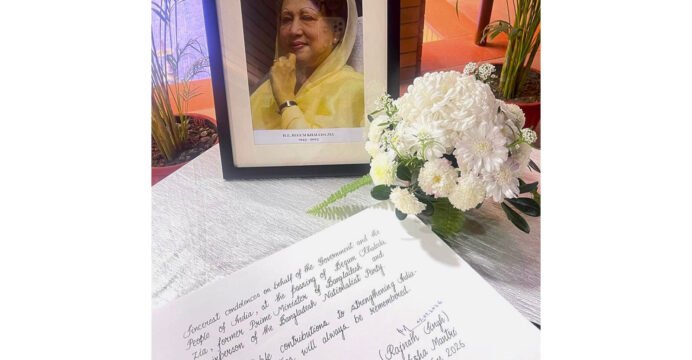 H.E. BEGUM KHALEDA ZIA
Sincerest condolences on behalf of the Government and the
People of India, at the passing of Begum Khaleda
Zia, former Prime Minister of Bangladesh and
Chairperson of the Bangladesh Nationalist Party.
contributions to strengthening India-
will always be remembered.
(Rajnath Singh)
Mantri
2026